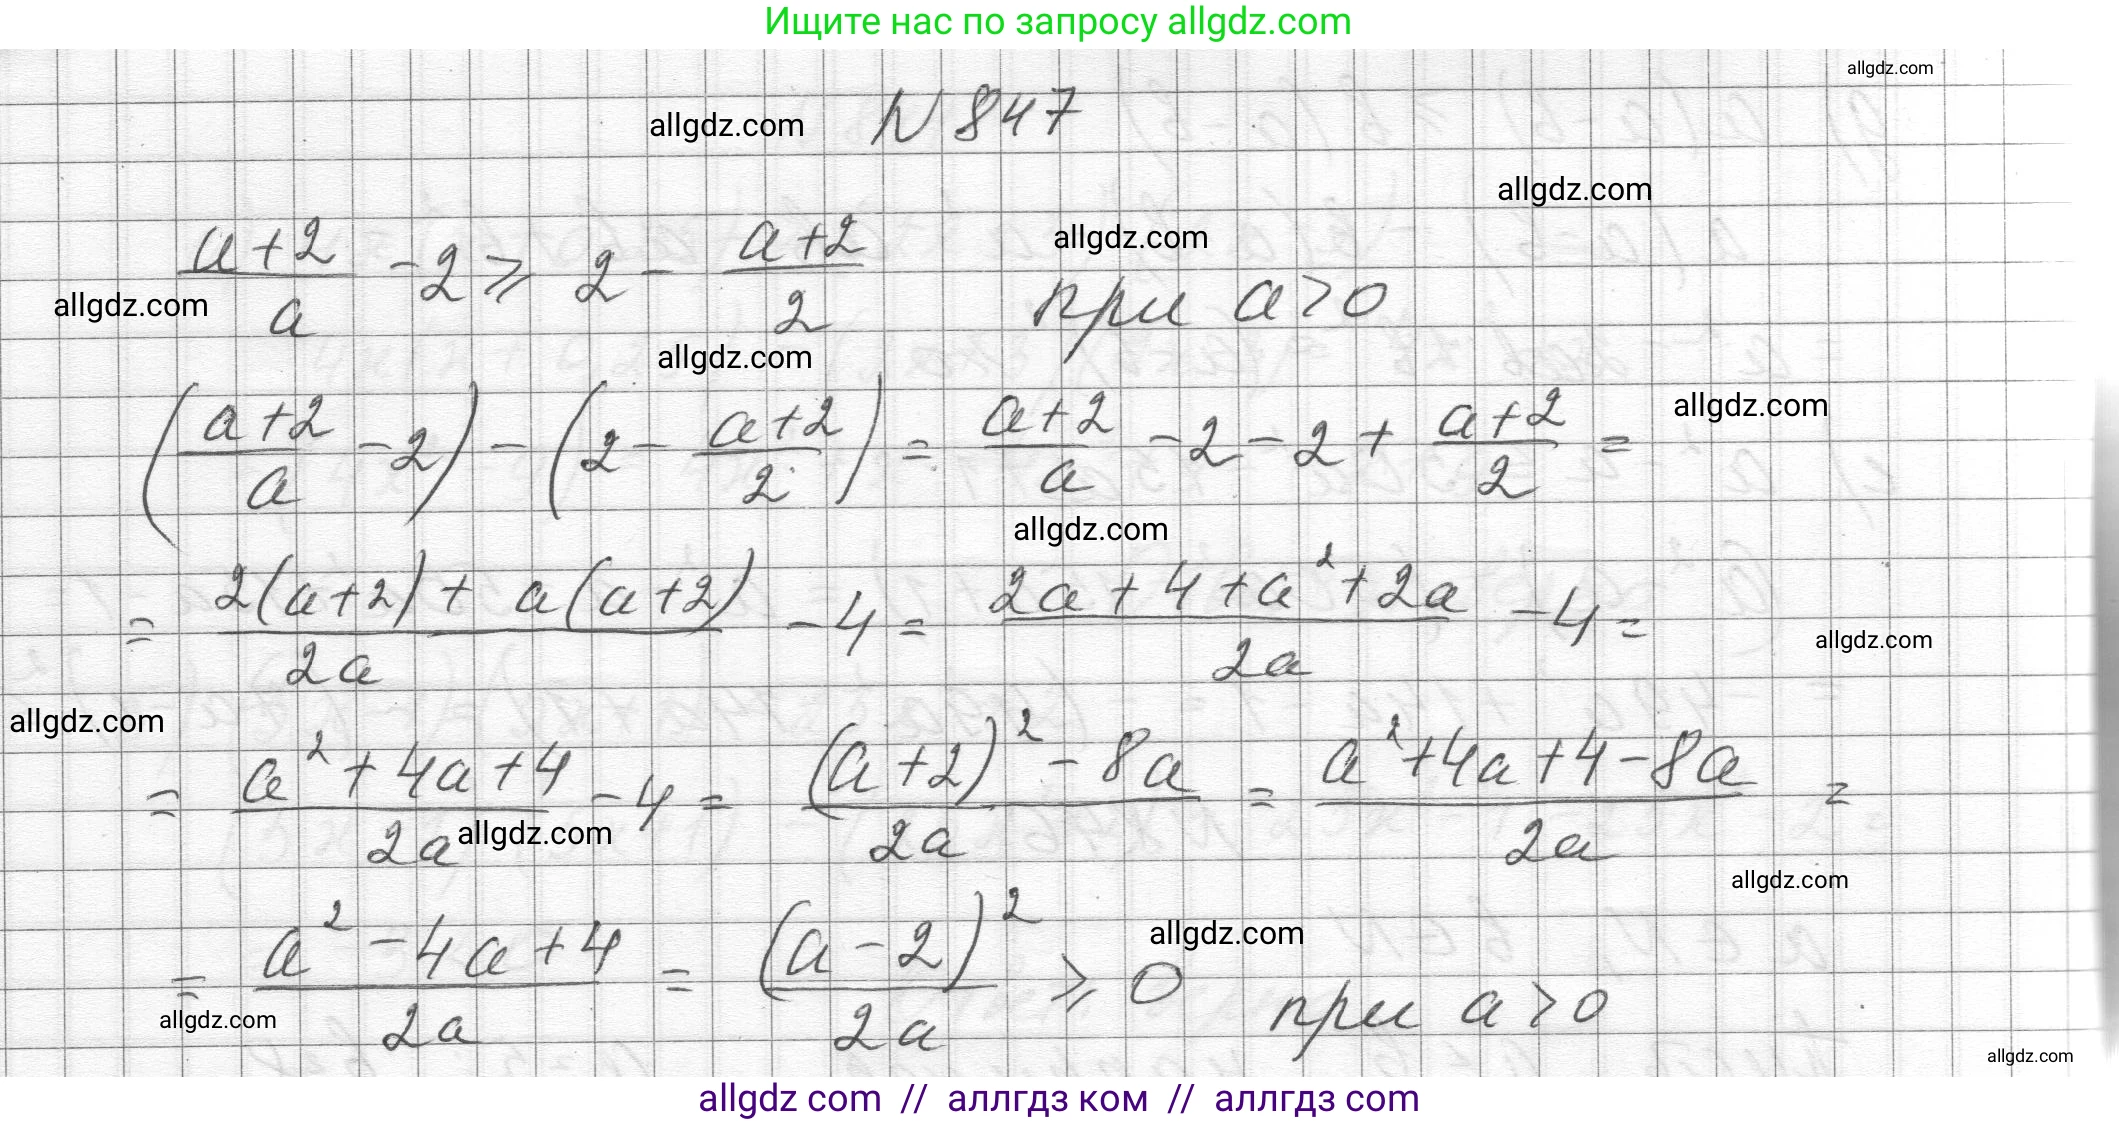 Ищите нас по запросу allgdz.com
allgdz.com
allgdz.com
N 847
allgdz.com
(a+2)/a - 2 ⩾ 2 - (a+2)/2 при a > 0
allgdz.com
allgdz.com
allgdz.com
((a+2)/a - 2) - (2 - (a+2)/2) = (a+2)/a - 2 - 2 + (a+2)/2 =
allgdz.com
allgdz.com
= (2(a+2) + a(a+2))/2a - 4 = (2a + 4 + a² + 2a)/2a - 4 =
allgdz.com
allgdz.com
= (a² + 4a + 4)/2a - 4 = ((a+2)² - 8a)/2a = (a² + 4a + 4 - 8a)/2a =
allgdz.com
allgdz.com
= (a² - 4a + 4)/2a = (a - 2)²/2a ⩾ 0 при a > 0
allgdz.com
allgdz.com
allgdz.com
allgdz com // аллгдз ком // аллгдз com